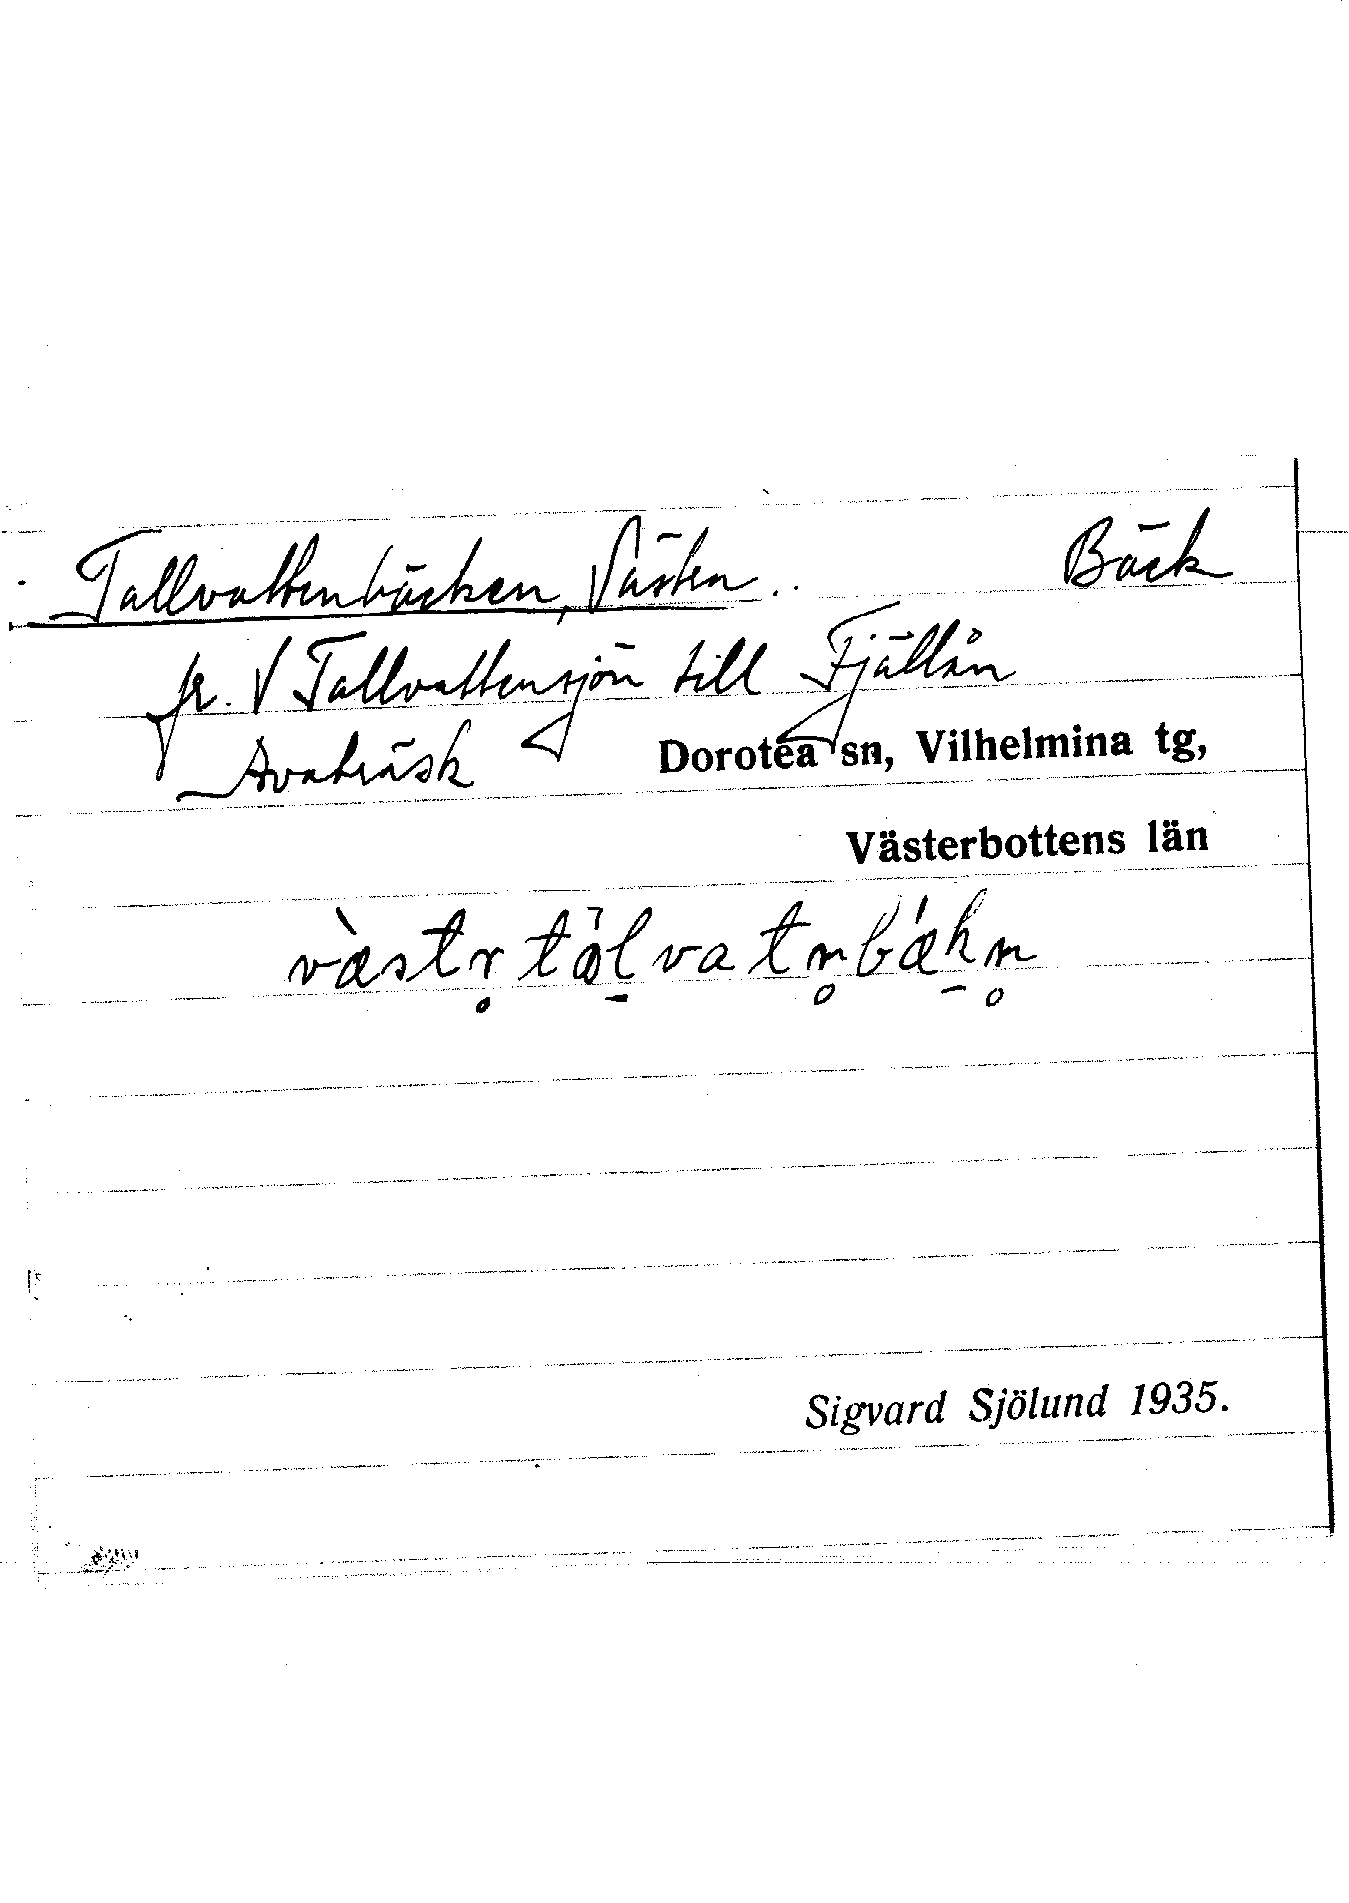 Tallvattenbäcken, Västra .. Bäck
fr. V Tallvattensjön till Fjällån
Avaträsk Dorotea sn, Vilhelmina tg,
Västerbottens län
Sigvard Sjölund 1935.